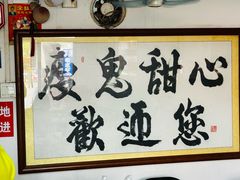 瘦鬼甜心
歡迎您
地
进